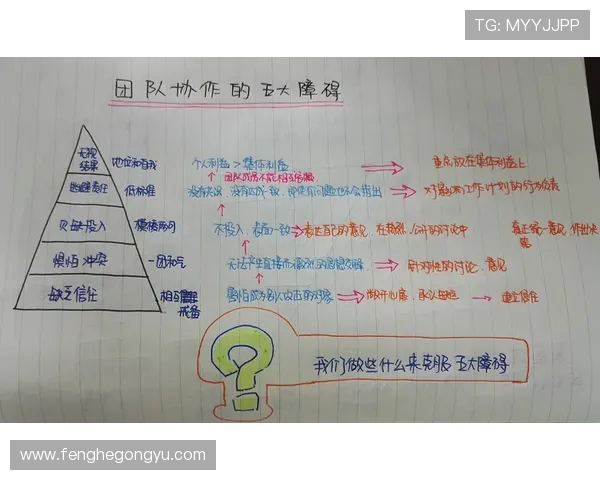 TG: MYYJJPP
团队协作的五大障碍
无视结果 地位和自我 个人利益 > 集体利益 重点放在集体利益上
团队成员不能相互
逃避责任 低标准
欠缺投入 模棱两可 不投入、表面一致 表达自己的意见、在 公开的讨论中 真正统一意见、作出决
惧怕冲突 一团和气 无法产生直接而激烈的思想交锋 针对性的讨论、意见
缺乏信任 相互 戒备 害怕成为别人攻击的对象 敞开心扉、承认 建立信任
我们做些什么来克服五大障碍
www.fenghegongyu.com